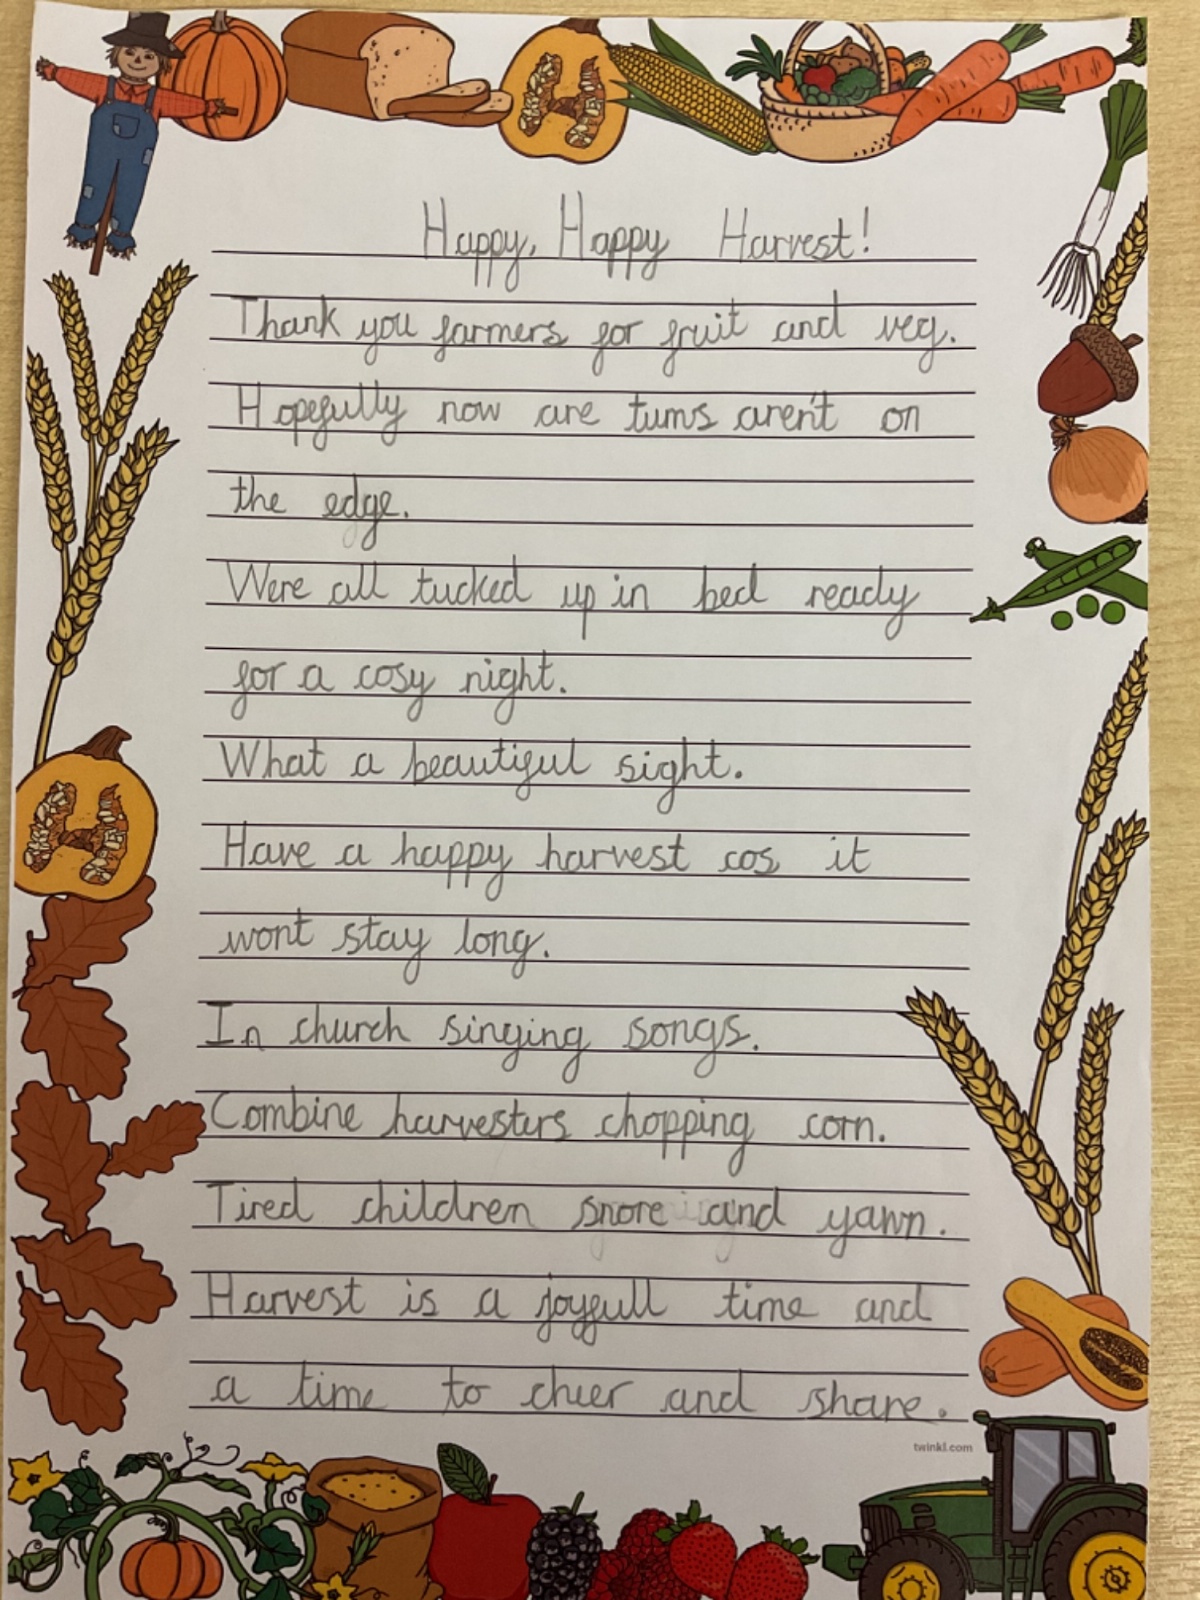 Happy, Happy Harvest!
Thank you farmers for fruit and veg.
Hopefully now are tums aren't on
the edge.
Were all tucked up in bed ready
for a cosy night.
What a beautiful sight.
Have a happy harvest cos it
wont stay long.
In church singing songs.
Combine harvesters chopping corn.
Tired children snore and yawn.
Harvest is a joyfull time and
a time to cheer and share.
twinkl.com